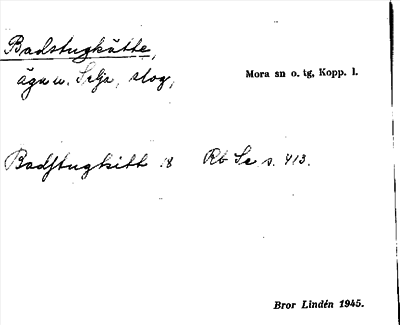 Badstugkätte,
äga u. Selja, slog,
Mora sn o. tg, Kopp. l.
Badstugkitt :8 Rb Se s. 413.
Bror Lindén 1945.